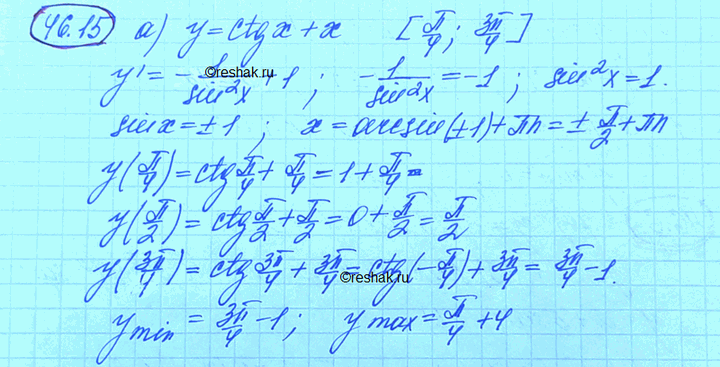 46.15 а) y = ctg x + x [π/4; 3π/4]
y' = -1/sin²x + 1; -1/sin²x = -1; sin²x = 1.
©reshak.ru
sin x = ±1; x = arcsin(±1) + πn = ±π/2 + πn
y(π/4) = ctg π/4 + π/4 = 1 + π/4
y(π/2) = ctg π/2 + π/2 = 0 + π/2 = π/2
y(3π/4) = ctg 3π/4 + 3π/4 = ctg(-π/4) + 3π/4 = 3π/4 - 1.
©reshak.ru
y min = 3π/4 - 1; y max = π/4 + 4